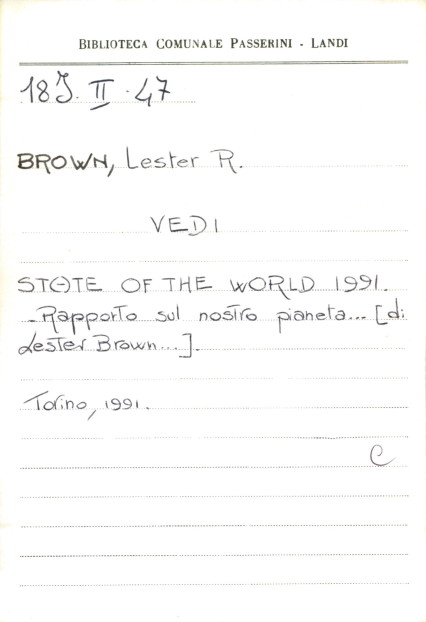 BIBLIOTECA COMUNALE PASSERINI - LANDI
18J. II. 47
BROWN, Lester R.
VEDI
STATE OF THE WORLD 1991.
-Rapporto sul nostro pianeta... [di
Lester Brown...].
Torino, 1991.
C